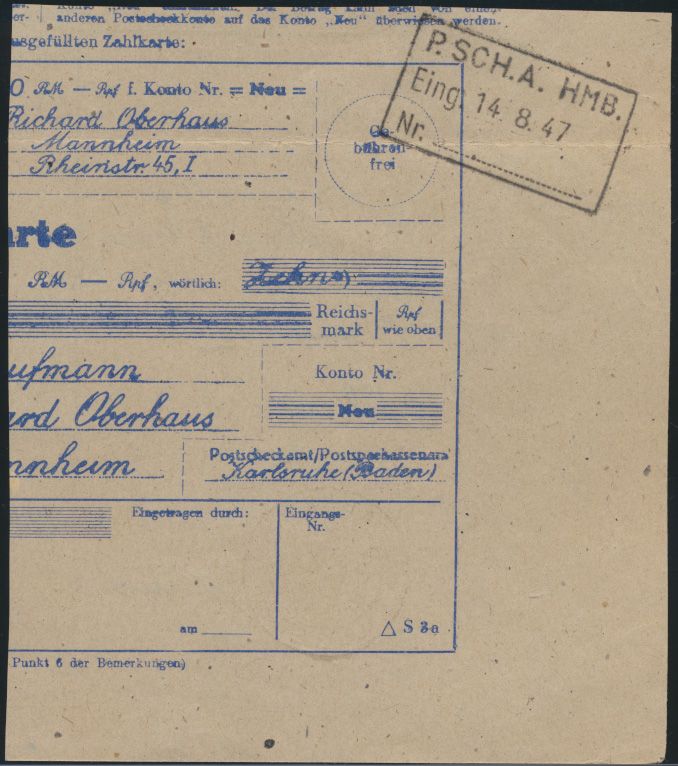 Konto „Neu"
anderen Postscheckkonto auf das Konto „Neu" überwiesen werden.
usgefüllten Zahlkarte:
P. SCH. A. HMB.
Eing. 14. 8. 47
Nr.
0 RM — Rpf f. Konto Nr. = Neu =
Richard Oberhaus
Mannheim
Rheinstr. 45, I
Ge
bühren-
frei
arte
RM — Rpf, wörtlich: Zehn
Reichs-
mark
Rpf
wie oben
ufmann
Konto Nr.
ard Oberhaus
Neu
nnheim
Postscheckamt/Postsparkassenamt
Karlsruhe (Baden)
Eingetragen durch:
Eingangs-
Nr.
am
△ S 3a
Punkt 6 der Bemerkungen)